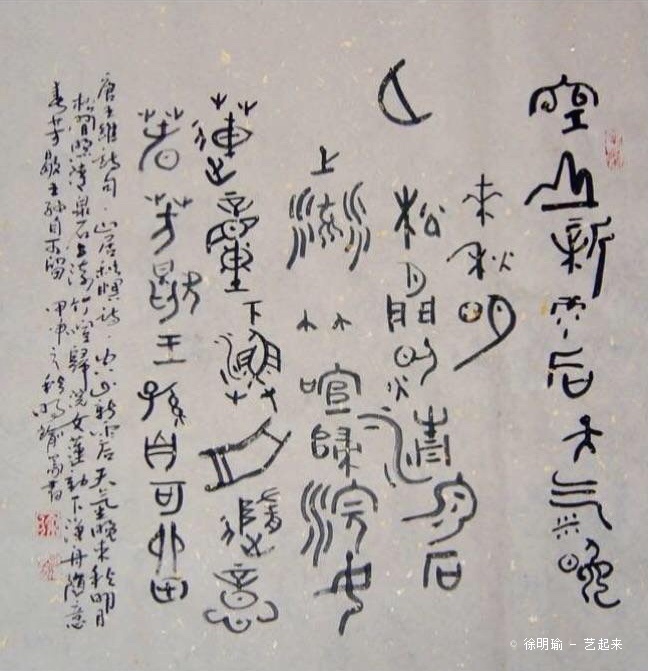 空山新雨后天气晚
来秋明
月松間照清泉石
上流竹喧歸浣女
蓮動下漁舟隨意
春芳歇王孫自可留
唐王維詩句山居秋暝詩空山新雨后天气晚来秋明月
松間照清泉石上流竹喧歸浣女蓮動下漁舟隨意
春芳歇王孫自可留甲申之秋明瑜篆書
© 徐明瑜 - 艺起来